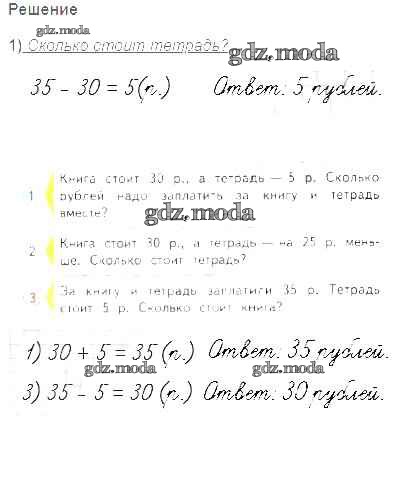 Решение
gdz.moda
1) Сколько стоит тетрадь?
gdz.moda
35 - 30 = 5(р.) Ответ: 5 рублей.
Книга стоит 30 р., а тетрадь — 5 р. Сколько
1 рублей надо заплатить за книгу и тетрадь
вместе?
gdz.moda
Книга стоит 30 р., а тетрадь — на 25 р. мень-
2 ше. Сколько стоит тетрадь?
3 За книгу и тетрадь заплатили 35 р. Тетрадь
стоит 5 р. Сколько стоит книга?
1) 30 + 5 = 35 (р.) Ответ: 35 рублей.
gdz.moda gdz.moda
3) 35 - 5 = 30 (р.) Ответ: 30 рублей.